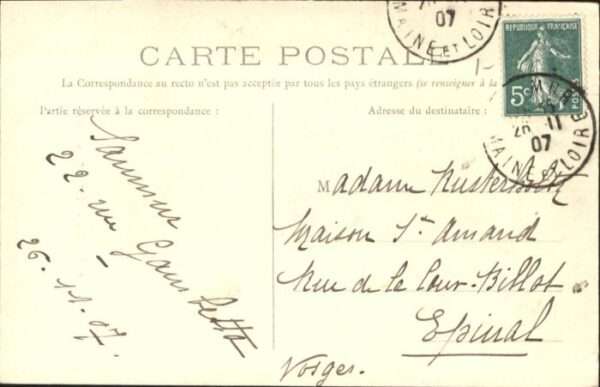 MAINE ET LOIRE
07
RÉPUBLIQUE FRANÇAISE
POSTES
5c
26 - 11
07
MAINE ET LOIRE
CARTE POSTALE
La Correspondance au recto n'est pas acceptée par tous les pays étrangers (se renseigner à la
Partie réservée à la correspondance :
Adresse du destinataire :
Saumur
22 - rue Gambetta
26. 11. 07.
Madame
Maison St Amand
Rue de la Cour-Billot
Epinal
Vosges.